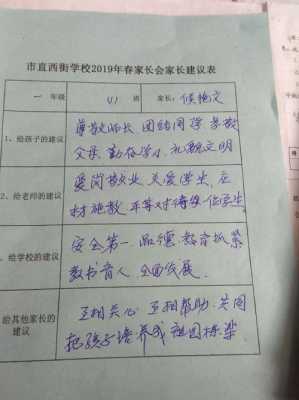 市直西街学校2019年春家长会家长建议表
一 年级 班 家长:
1、给孩子的建议
尊敬师长 团结同学 孝敬
父母 勤奋学习 礼貌文明
2、给老师的建议
爱岗敬业 关爱学生 因
材施教 平等对待每位学生
、给学校的建议
安全第一 品德教育抓紧
教书育人 全面发展.
给其他家长的
建议
互相关心 互相帮助 共同
把孩子培养成祖国栋梁